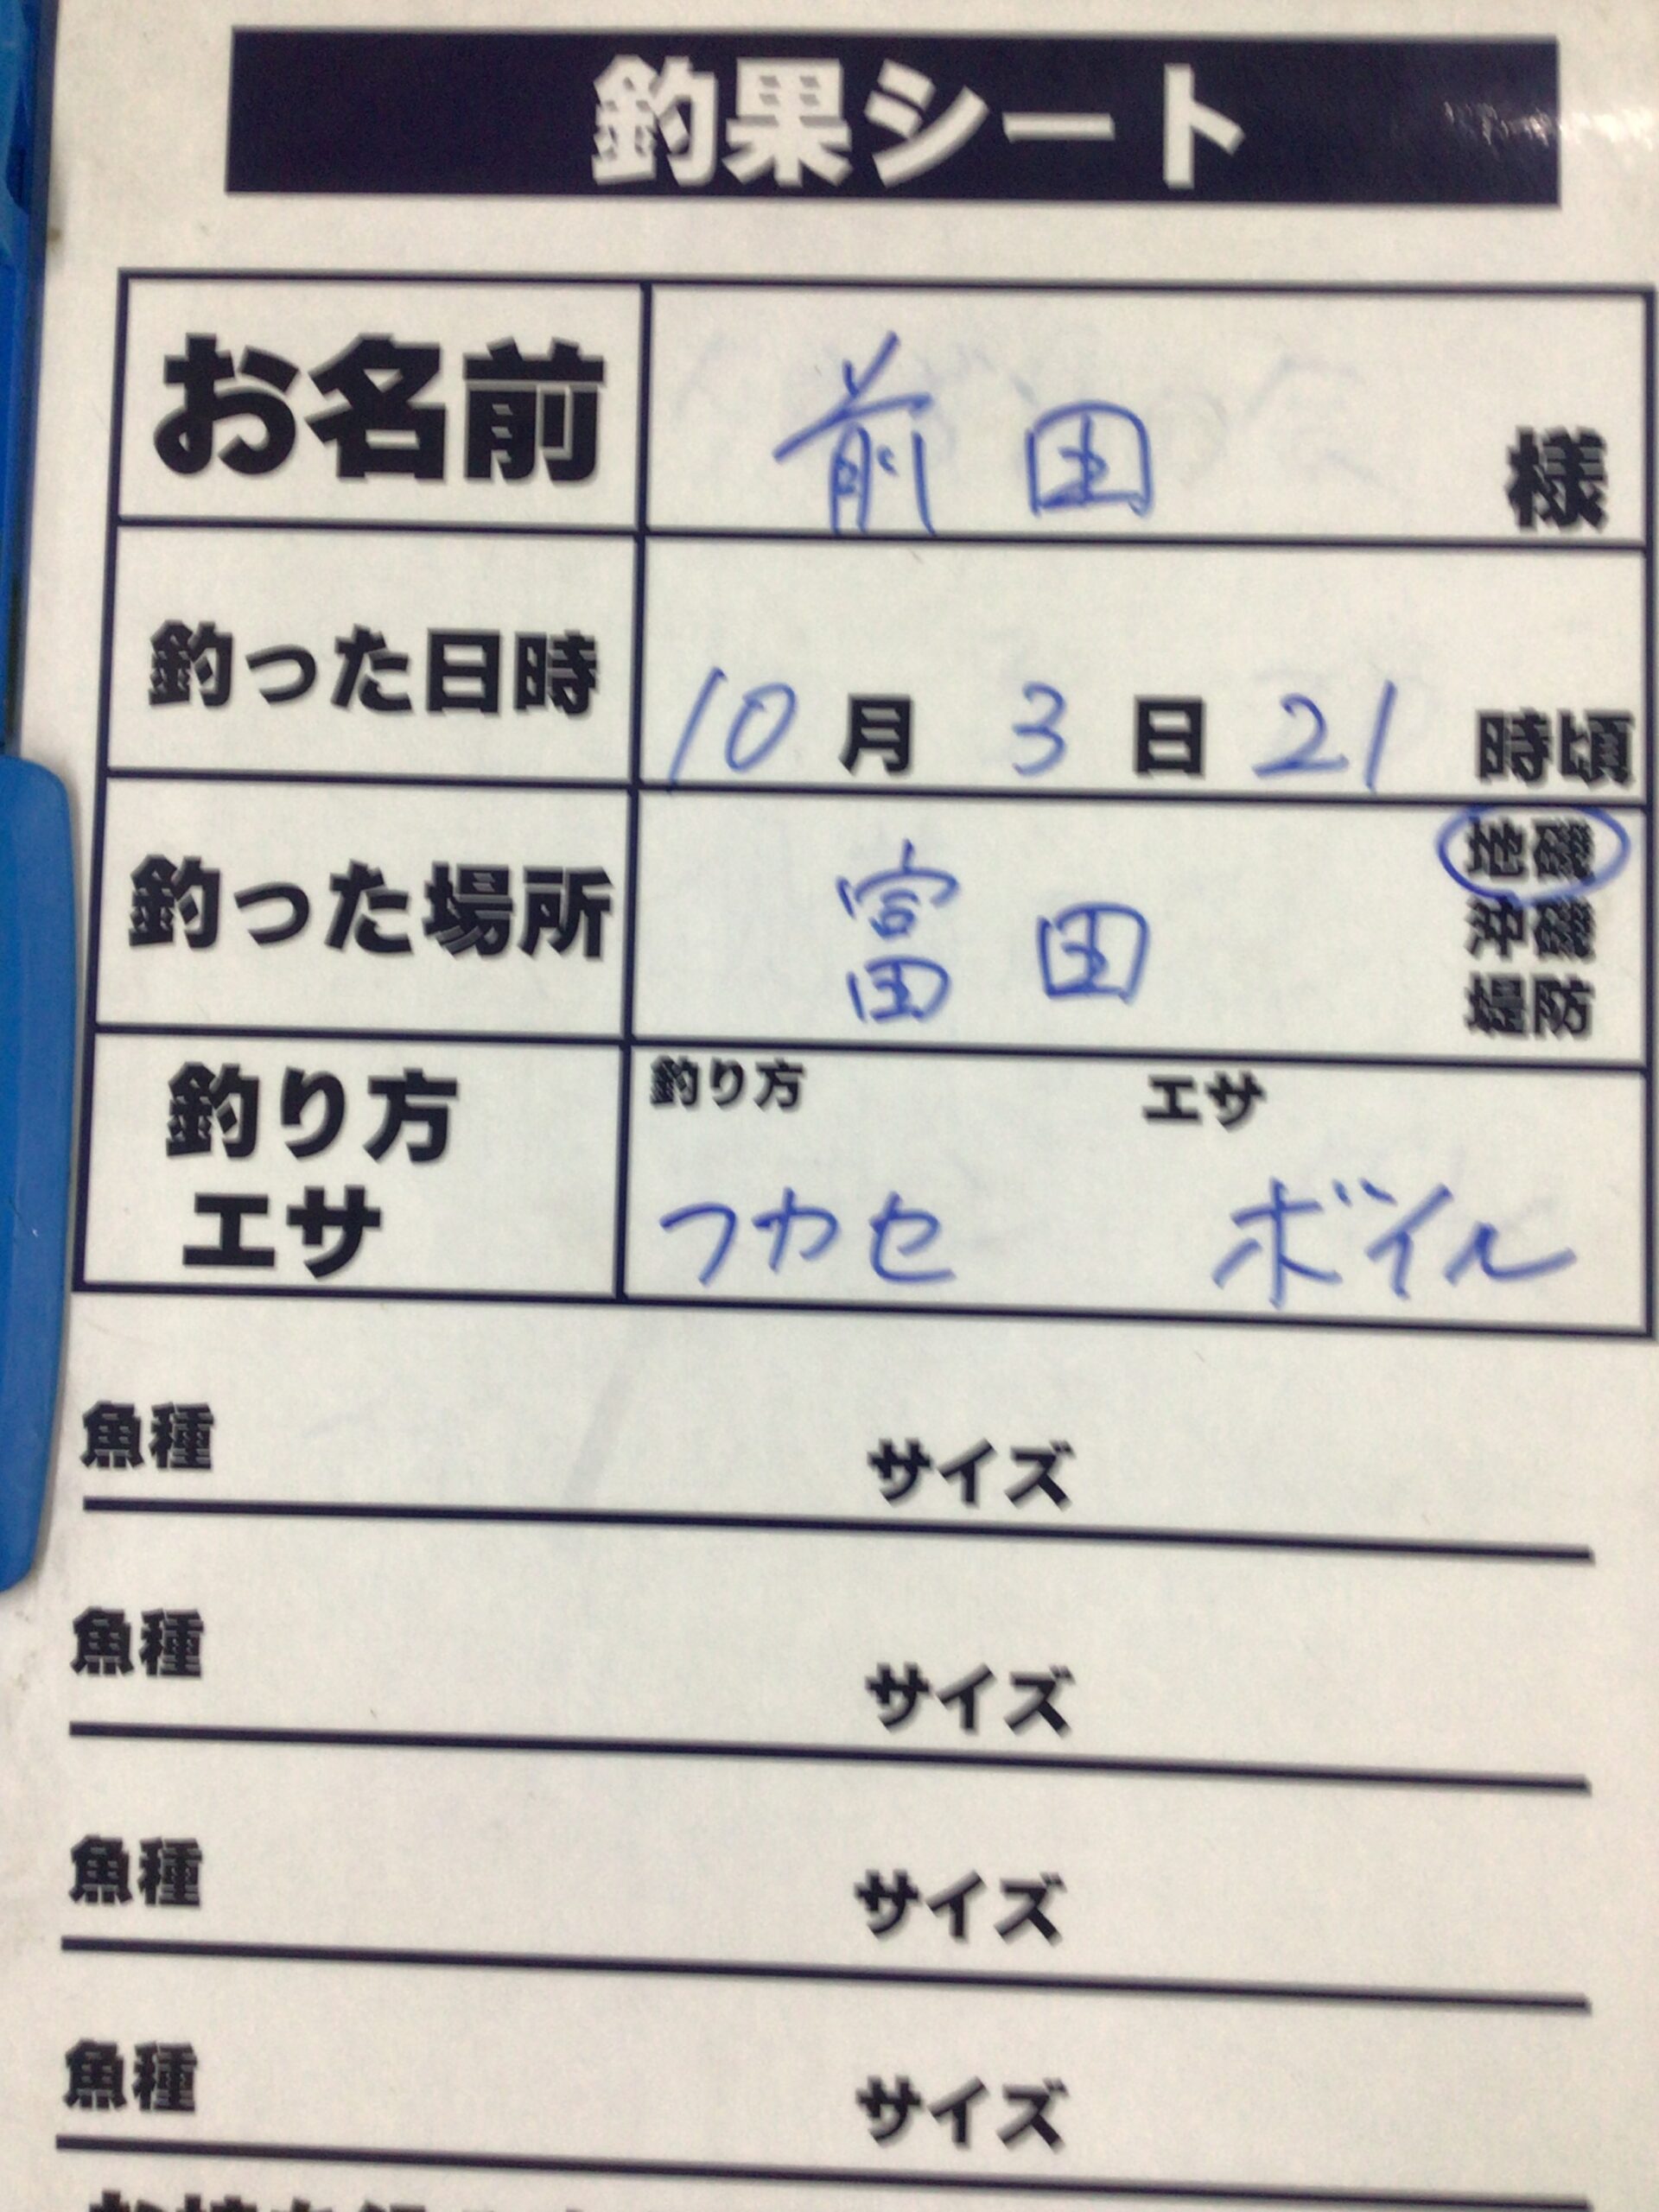 釣果シート
お名前 前田 様
釣った日時 10月 3日 21 時頃
釣った場所 富田 地磯
沖磯
堤防
釣り方 エサ
釣り方 エサ
フカセ ボイル
魚種 サイズ
魚種 サイズ
魚種 サイズ
魚種 サイズ